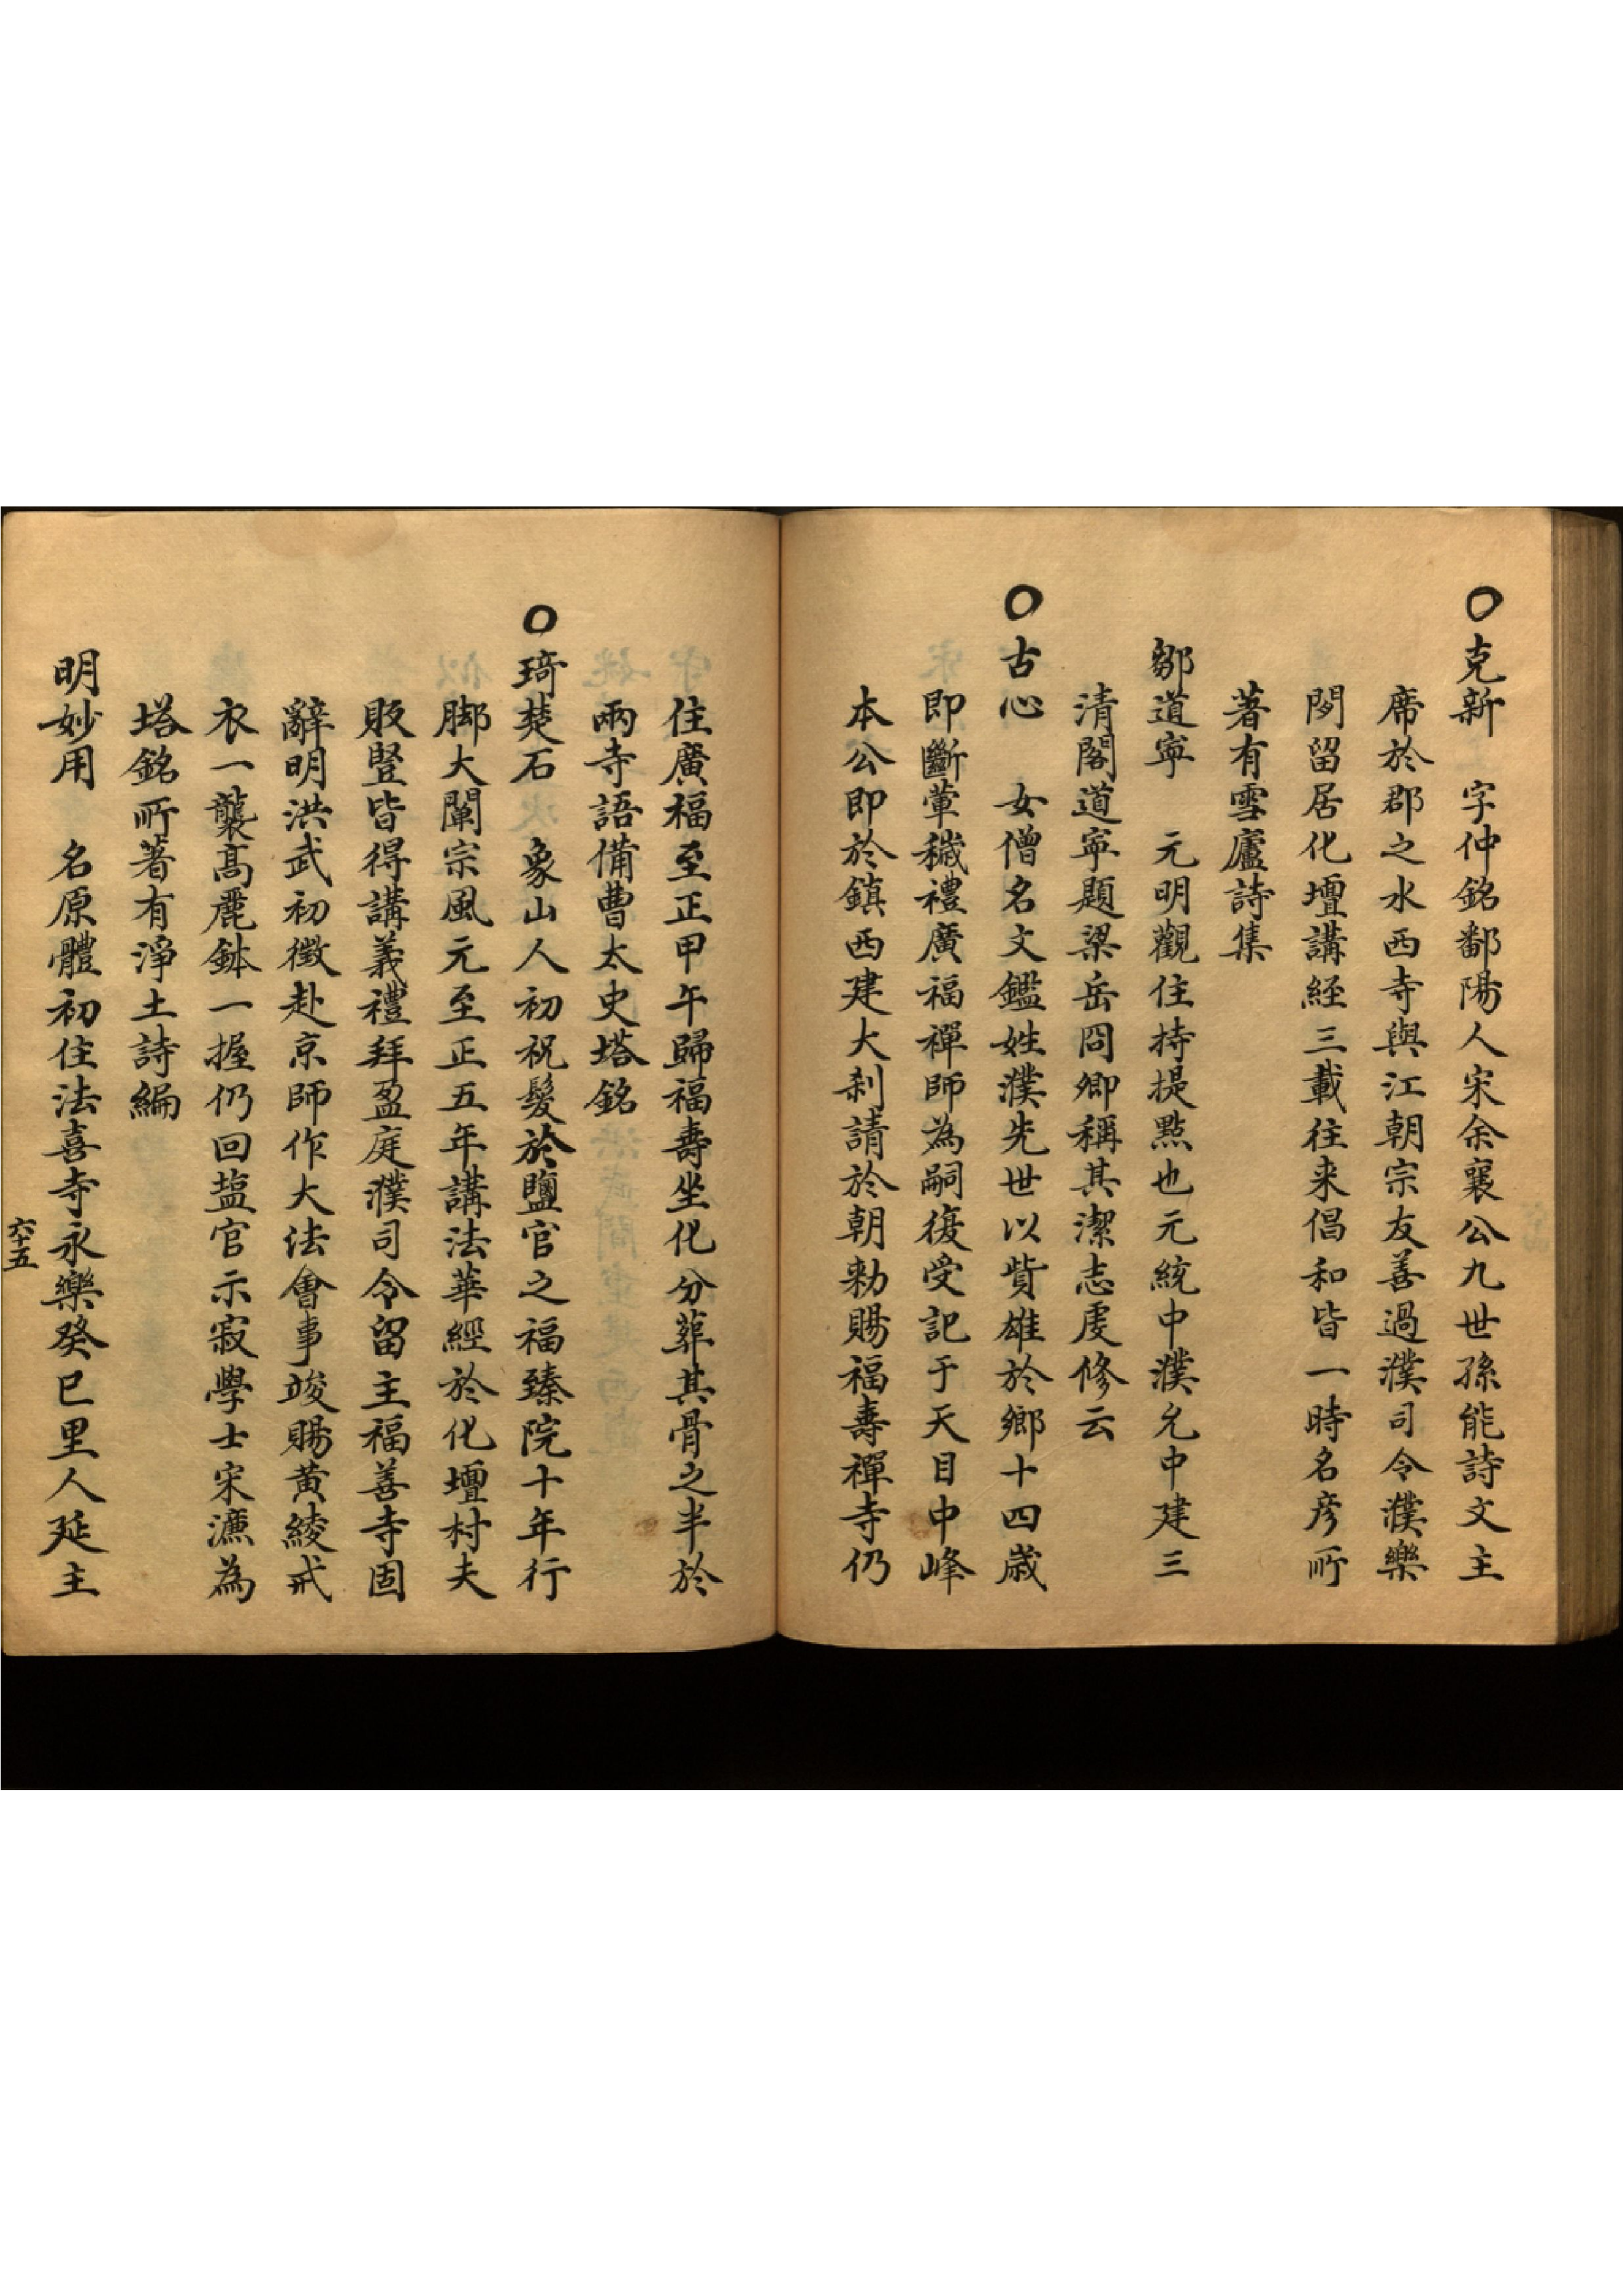 ○克新　字仲銘鄱陽人宋余襄公九世孫能詩文主
席於郡之水西寺與江朝宗友善過濮司令濮樂
閒留居化壇講經三載往来倡和皆一時名彦所
著有雪廬詩集
鄒道寧　元明觀住持提點也元統中濮允中建三
清閣道寧題梁岳冏卿稱其潔志虔修云
○古心　女僧名文鑑姓濮先世以貲雄於鄉十四歲
即斷葷穢禮廣福禪師為嗣復受記于天目中峰
本公即於鎮西建大刹請於朝勅賜福壽禪寺仍
住廣福至正甲午歸福壽坐化分葬其骨之半於
兩寺語備曹太史塔銘
○琦楚石　象山人初祝髮於鹽官之福臻院十年行
脚大闡宗風元至正五年講法華經於化壇村夫
販豎皆得講義禮拜盈庭濮司令留主福善寺固
辭明洪武初徵赴京師作大法會事竣賜黄綾戒
衣一襲髙麗鉢一握仍回塩官示寂學士宋濂為
塔銘所著有淨土詩編
明妙用　名原體初住法喜寺永樂癸巳里人延主
六十五